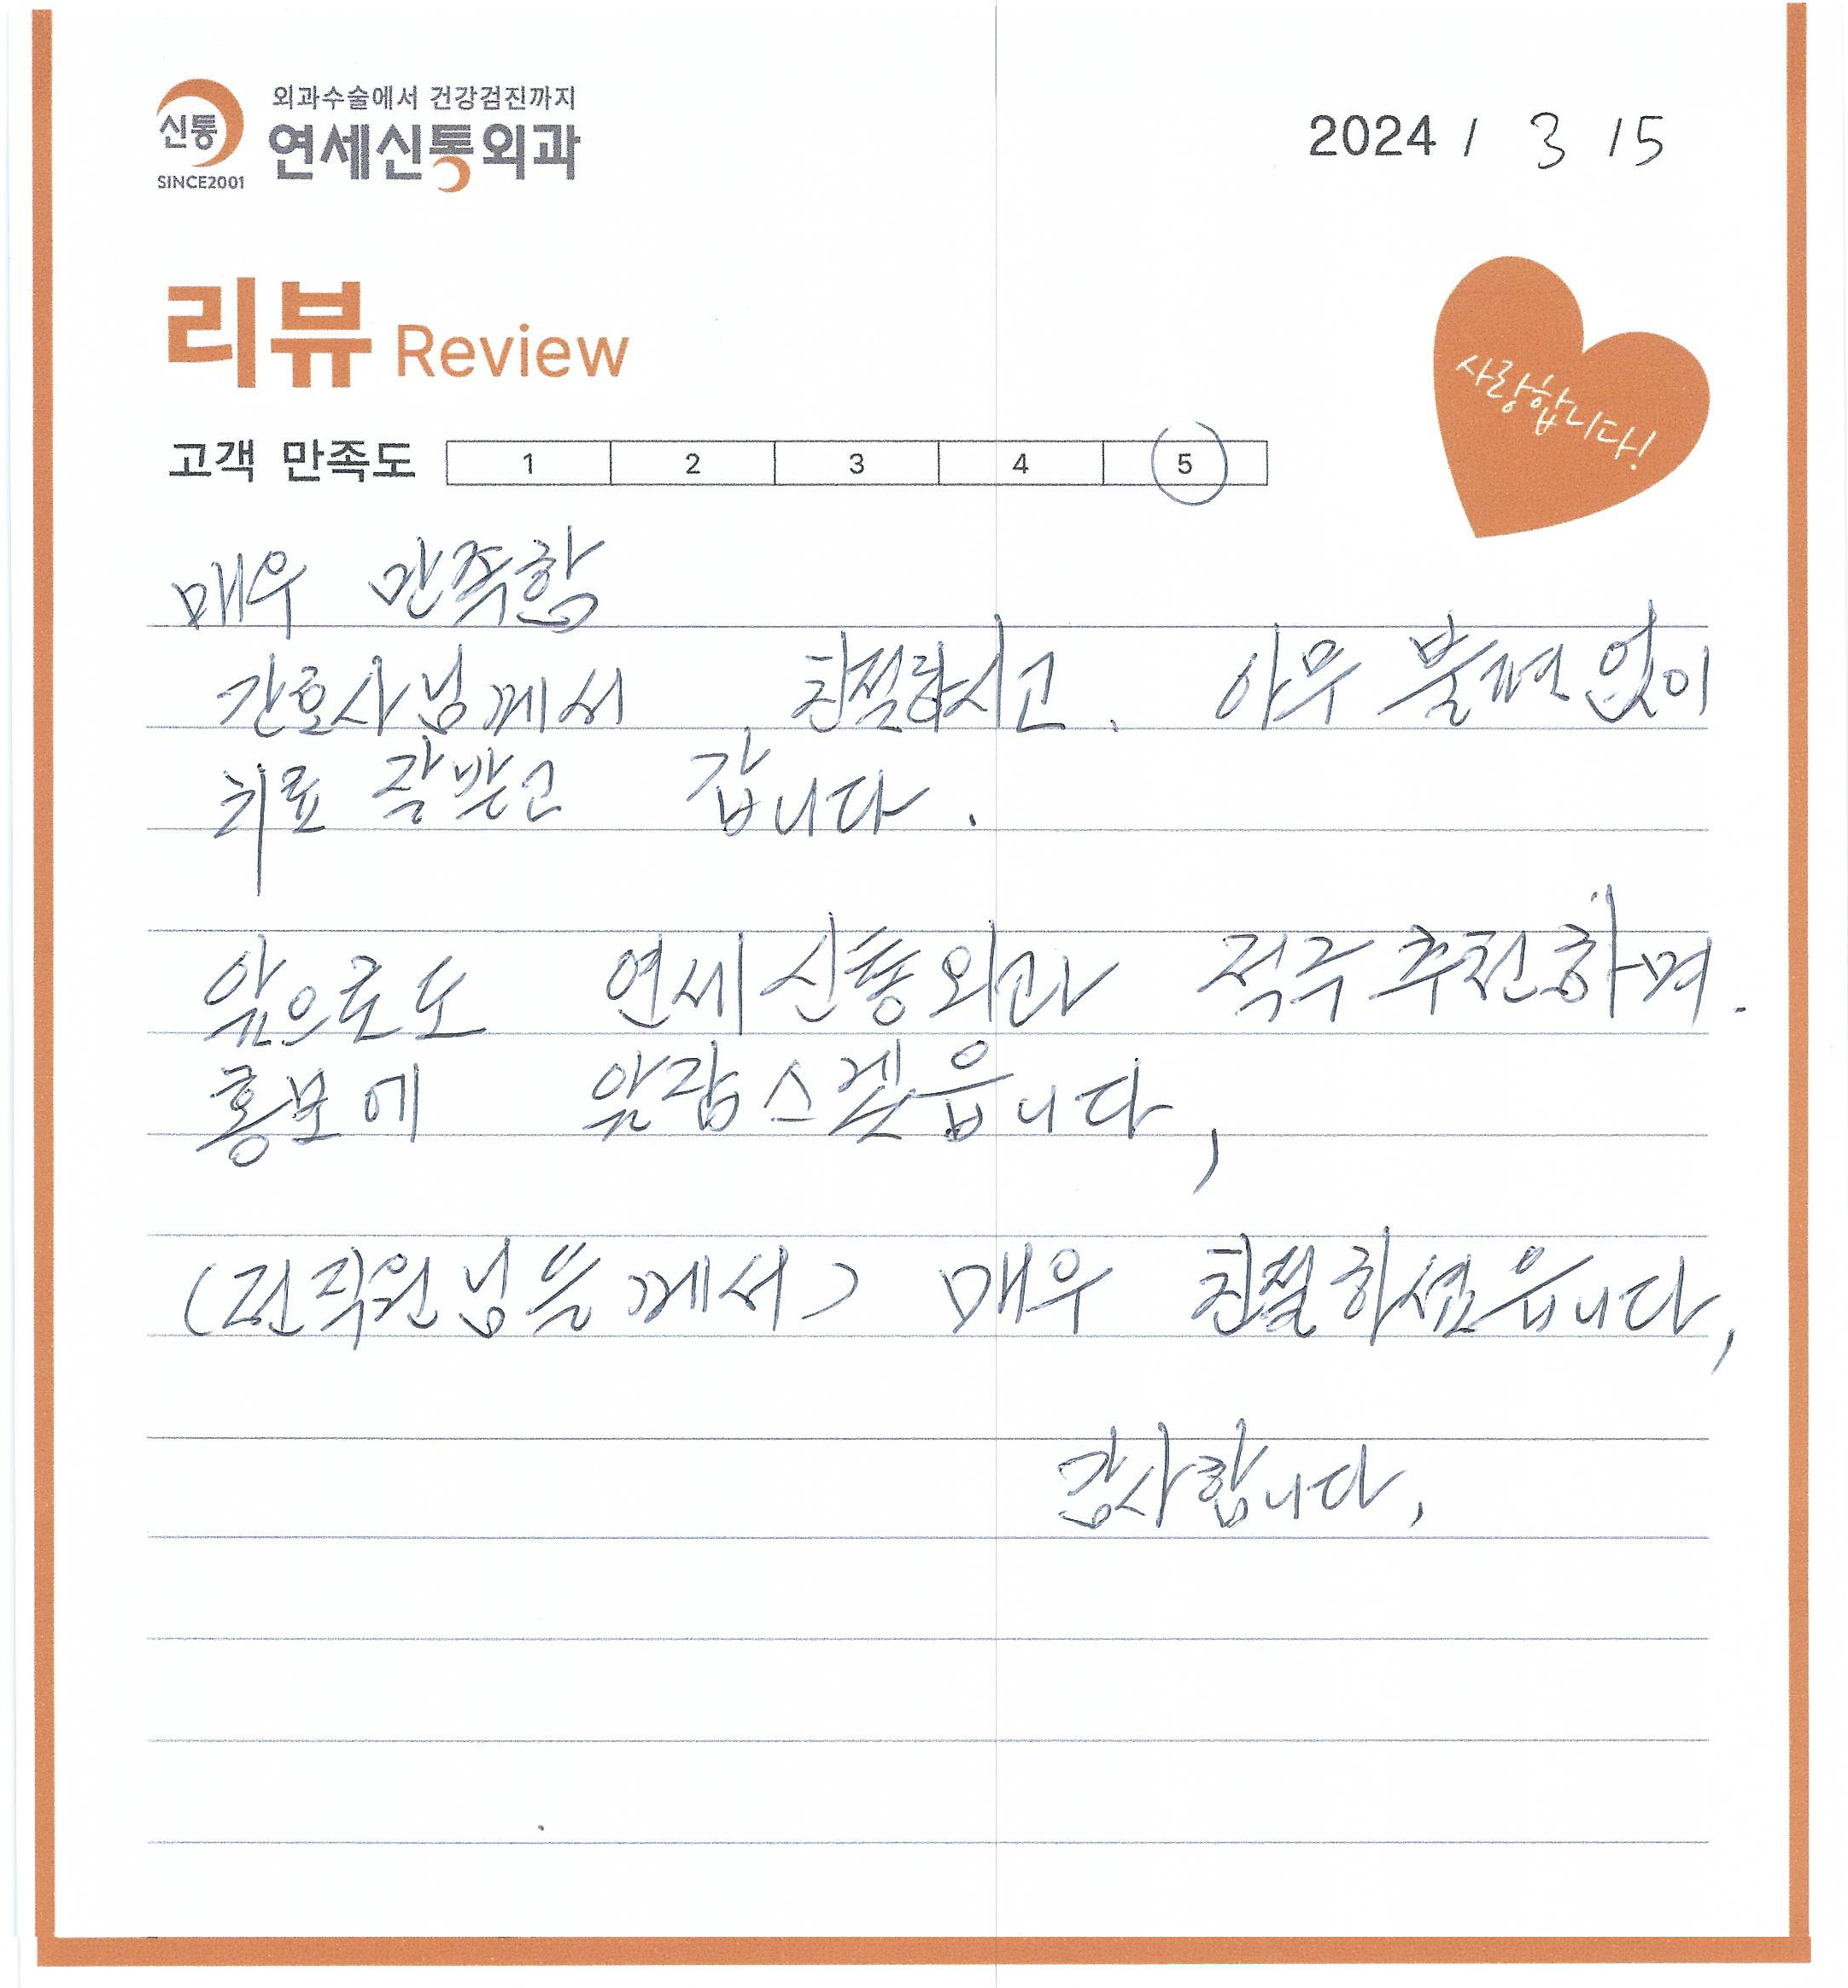 신통
SINCE2001
외과수술에서 건강검진까지
연세신통외과
2024 / 3 / 5
리뷰 Review
사랑합니다!
고객 만족도 1 2 3 4 5
매우 만족함
간호사님께서 친절하시고. 아무 불편없이
치료 잘받고 갑니다.
앞으로도 연세신통외과 적극추천하며.
홍보에 앞잠스겠읍니다,
(전직원님들께서) 매우 친절하셨읍니다,
감사합니다,